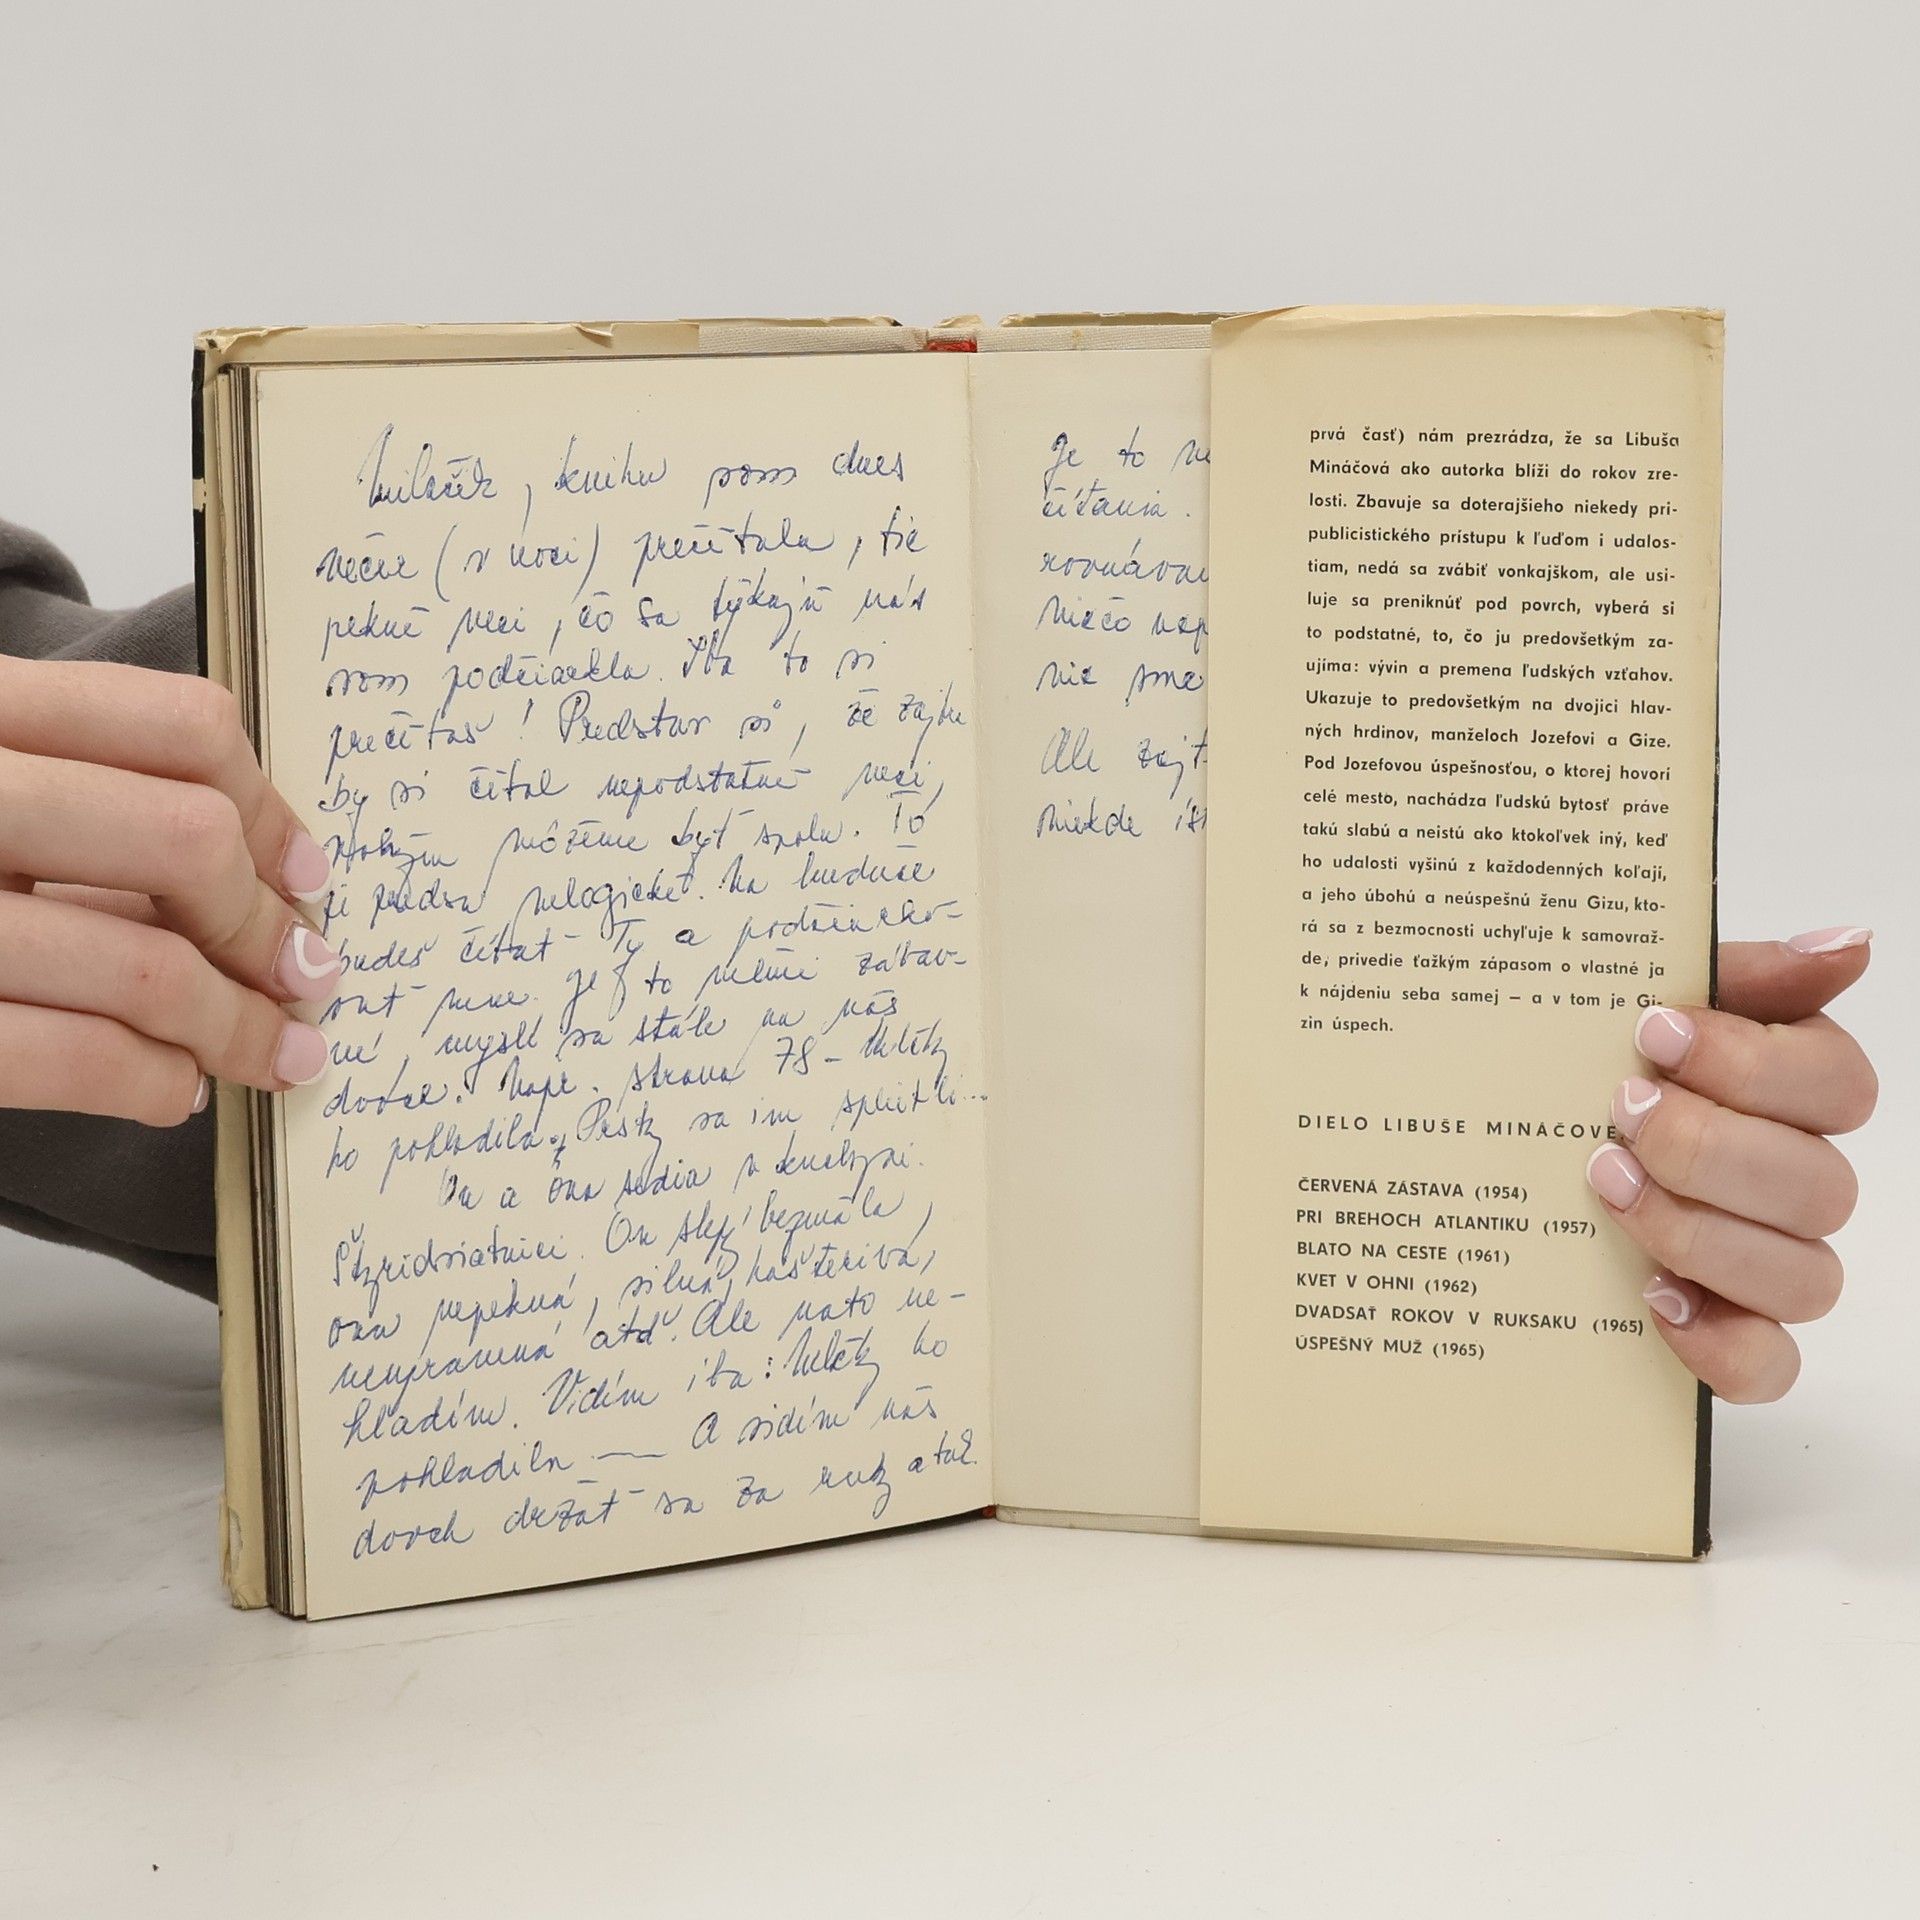 Miláčik, knihu som dnes
večer (v noci) prečítala, tie
pekné veci, čo sa týkajú nás
som podčiarkla. Iba to si
prečítaš! Predstav si, že zajtra
by si čítal nepodstatné veci,
môžeme byť spolu. To
je predsa nelogické. Na budúce
budeš čítať Ty a podčiarko-
vať mne. Je to veľmi zábav-
né, myslí sa stále na nás
dvoch. Napr. strana 78 – Mlčky
ho pohladila. Prsty sa im splietli...
On a Ona sedia v kuchyni.
Štyridsiatnici. On slepý bezmála,
ona nepekná, silná, hašterivá,
neupravená atď. Ale na to ne-
hľadím. Vidím iba: Mlčky ho
pohladila — A vidím nás
dvoch držať sa za ruky atď.
Je to
čítania.
niečo
nie sme
Ale zajt
niekde
prvá časť) nám prezrádza, že sa Libuša
Mináčová ako autorka blíži do rokov zre-
losti. Zbavuje sa doterajšieho niekedy pri-
publicistického prístupu k ľuďom i udalos-
tiam, nedá sa zvábiť vonkajškom, ale usi-
luje sa preniknúť pod povrch, vyberá si
to podstatné, to, čo ju predovšetkým za-
ujíma: vývin a premena ľudských vzťahov.
Ukazuje to predovšetkým na dvojici hlav-
ných hrdinov, manželoch Jozefovi a Gize.
Pod Jozefovou úspešnosťou, o ktorej hovorí
celé mesto, nachádza ľudskú bytosť práve
takú slabú a neistú ako ktokoľvek iný, keď
ho udalosti vyšinú z každodenných koľají,
a jeho úbohú a neúspešnú ženu Gizu, kto-
rá sa z bezmocnosti uchyľuje k samovraž-
de, privedie ťažkým zápasom o vlastné ja
k nájdeniu seba samej – a v tom je Gi-
zin úspech.
DIELO LIBUŠE MINÁČOVE
ČERVENÁ ZÁSTAVA (1954)
PRI BREHOCH ATLANTIKU (1957)
BLATO NA CESTE (1961)
KVET V OHNI (1962)
DVADSAŤ ROKOV V RUKSAKU (1965)
ÚSPEŠNÝ MUŽ (1965)